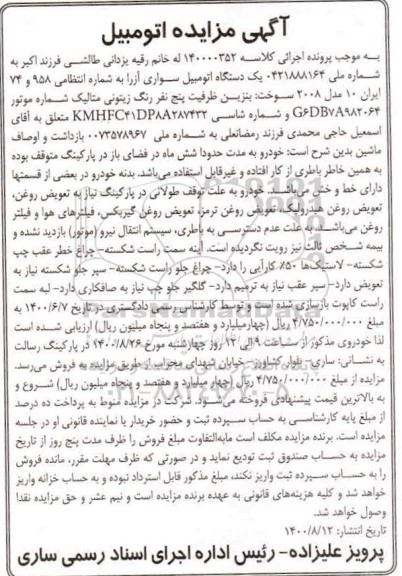 آگهی مزایده اتومبیل
به موجب پرونده اجرائی کلاسه ۱۴۰۰۰۰۳۵۲ له خانم رقیه یزدانی طالشی فرزند اکبر به
شماره ملی ۰۴۲۱۸۸۸۱۶۴ یک دستگاه اتومبیل سواری آزرا به شماره انتظامی ۹۵۸ و ۷۴
ایران ۱۰ مدل ۲۰۰۸ سوخت: بنزین ظرفیت پنج نفر رنگ زیتونی متالیک شماره موتور
G۶DB۷A۹۸۲۰۶۴ و شماره شاسی KMHFC۴۱DP۸A۲۸۷۴۳۲ متعلق به آقای
اسمعیل حاجی محمدی فرزند رمضانعلی به شماره ملی ۰۰۷۳۵۷۸۹۶۷ بازداشت و اوصاف
ماشین بدین شرح است: خودرو به مدت حدودا شش ماه در فضای باز در پارکینگ متوقف بوده
به همین خاطر باطری از کار افتاده و غیرقابل استفاده می‌باشد. بدنه خودرو در بعضی از قسمتها
دارای خط و خش می‌باشد. خودرو به علت توقف طولانی در پارکینگ نیاز به تعویض روغن،
تعویض روغن هیدرولیک، تعویض روغن ترمز، تعویض روغن گیربکس، فیلترهای هوا و فیلتر
روغن می‌باشد. به علت عدم دسترسی به باطری، سیستم انتقال نیرو (موتور) بازدید نشده و
بیمه شخص ثالث نیز رویت نگردیده است. آینه سمت راست شکسته- چراغ خطر عقب چپ
شکسته- لاستیک‌ها ۵۰٪ کارآیی را دارد- چراغ جلو راست شکسته- سپر جلو شکسته نیاز به
تعویض دارد- سپر عقب نیاز به ترمیم دارد- گلگیر جلو چپ نیاز به صافکاری دارد- لبه سمت
راست کاپوت بازسازی شده است و توسط کارشناس رسمی دادگستری در تاریخ ۱۴۰۰/۶/۷ به
مبلغ ۴/۷۵۰/۰۰۰/۰۰۰ ریال (چهارمیلیارد و هفتصد و پنجاه میلیون ریال) ارزیابی شده است
لذا خودروی مذکور از ساعت ۹ الی ۱۲ روز چهارشنبه مورخ ۱۴۰۰/۸/۲۶ در پارکینگ رسالت
به نشانی: ساری- بلوار کشاورز- خیابان شهدای محراب از طریق مزایده به فروش می‌رسد.
مزایده از مبلغ ۴/۷۵۰/۰۰۰/۰۰۰ ریال (چهار میلیارد و هفتصد و پنجاه میلیون ریال) شروع و
به بالاترین قیمت پیشنهادی فروخته می‌شود. شرکت در مزایده منوط به پرداخت ده درصد
از مبلغ پایه کارشناسی به حساب سپرده ثبت و حضور خریدار یا نماینده قانونی او در جلسه
مزایده است. برنده مزایده مکلف است مابه‌التفاوت مبلغ فروش را ظرف مدت پنج روز از تاریخ
مزایده به حساب صندوق ثبت تودیع نماید و در صورتی که ظرف مهلت مقرر، مانده فروش
را به حساب سپرده ثبت واریز نکند، مبلغ مذکور قابل استرداد نبوده و به حساب خزانه واریز
خواهد شد و کلیه هزینه‌های قانونی به عهده برنده مزایده است و نیم عشر و حق مزایده نقدا
وصول خواهد شد.
تاریخ انتشار: ۱۴۰۰/۸/۱۲
پرویز علیزاده- رئیس اداره اجرای اسناد رسمی ساری